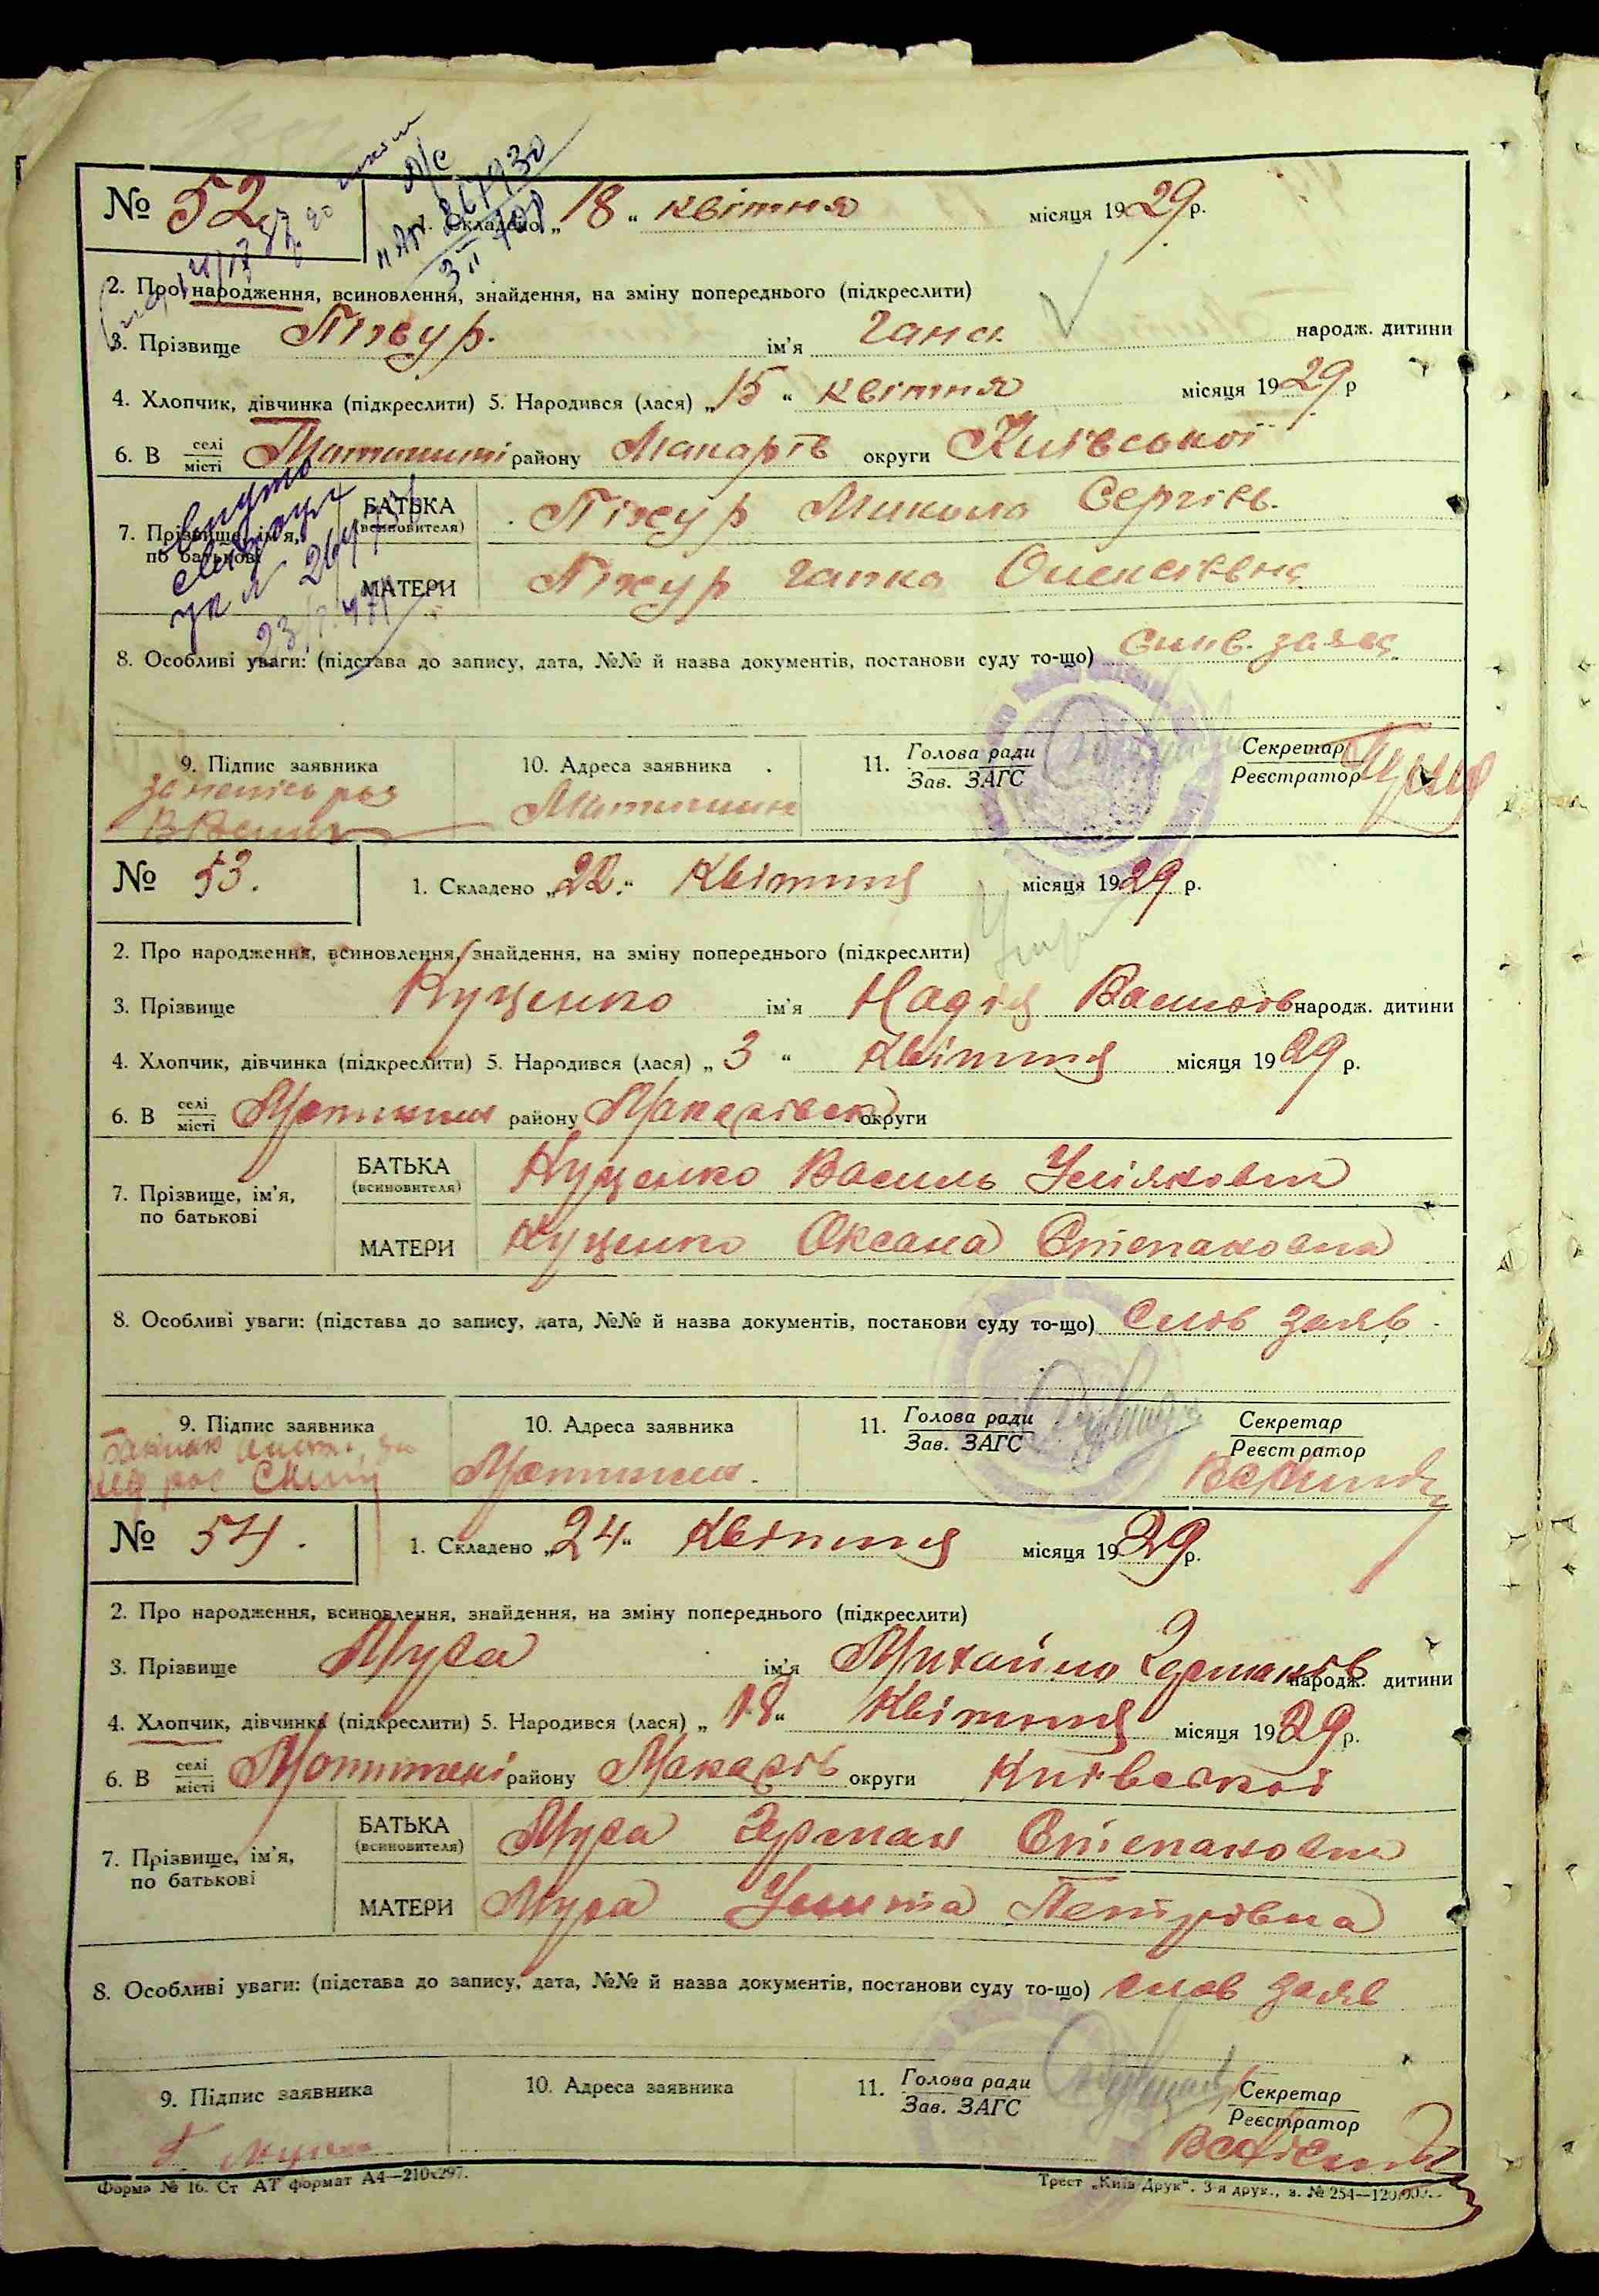 № 52
Складено „18“ квітня місяця 1929 р.
2. Про народження, всиновлення, знайдення, на зміну попереднього (підкреслити)
3. Прізвище Піжур. ім'я Ганя народж. дитини
4. Хлопчик, дівчинка (підкреслити) 5. Народився (лася) „15“ квітня місяця 1929 р
6. В селі місті Мотижині району Макарів округи Київської
7. Прізвище, ім'я, по батькові
БАТЬКА (всиновителя) Піжур Микола Сергіїв.
МАТЕРИ Піжур Гапка Олексіївна
8. Особливі уваги: (підстава до запису, дата, №№ й назва документів, постанови суду то-що) заява
9. Підпис заявника
10. Адреса заявника Мотижин
11. Голова ради Зав. ЗАГС
Секретар Реєстратор
№ 53.
1. Складено „22.“ Квітня місяця 1929 р.
2. Про народження, всиновлення, знайдення, на зміну попереднього (підкреслити)
3. Прізвище Куценко ім'я Надія Васильов народж. дитини
4. Хлопчик, дівчинка (підкреслити) 5. Народився (лася) „3“ Квітня місяця 1929 р.
6. В селі місті Мотижин району Макарівськ округи
7. Прізвище, ім'я, по батькові
БАТЬКА (всиновителя) Куценко Василь
МАТЕРИ Куценко Оксана Степановна
8. Особливі уваги: (підстава до запису, дата, №№ й назва документів, постанови суду то-що) Слов заяв
9. Підпис заявника
10. Адреса заявника Мотижин.
11. Голова ради Зав. ЗАГС
Секретар Реєстратор
№ 54.
1. Складено „24“ Квітня місяця 1929 р.
2. Про народження, всиновлення, знайдення, на зміну попереднього (підкреслити)
3. Прізвище Муха ім'я Михайло народж. дитини
4. Хлопчик, дівчинка (підкреслити) 5. Народився (лася) „18“ Квітня місяця 1929 р.
6. В селі місті Мотижині району Макарів округи Київської
7. Прізвище, ім'я, по батькові
БАТЬКА (всиновителя) Муха Герман Степанович
МАТЕРИ Муха Улита Петрівна
8. Особливі уваги: (підстава до запису, дата, №№ й назва документів, постанови суду то-що) слов заяв
9. Підпис заявника
10. Адреса заявника
11. Голова ради Зав. ЗАГС
Секретар Реєстратор
Форма № 16. Ст АТ формат А4—210х297.
Трест „Київ Друк“. 3-я друк., з. № 254—120.000.